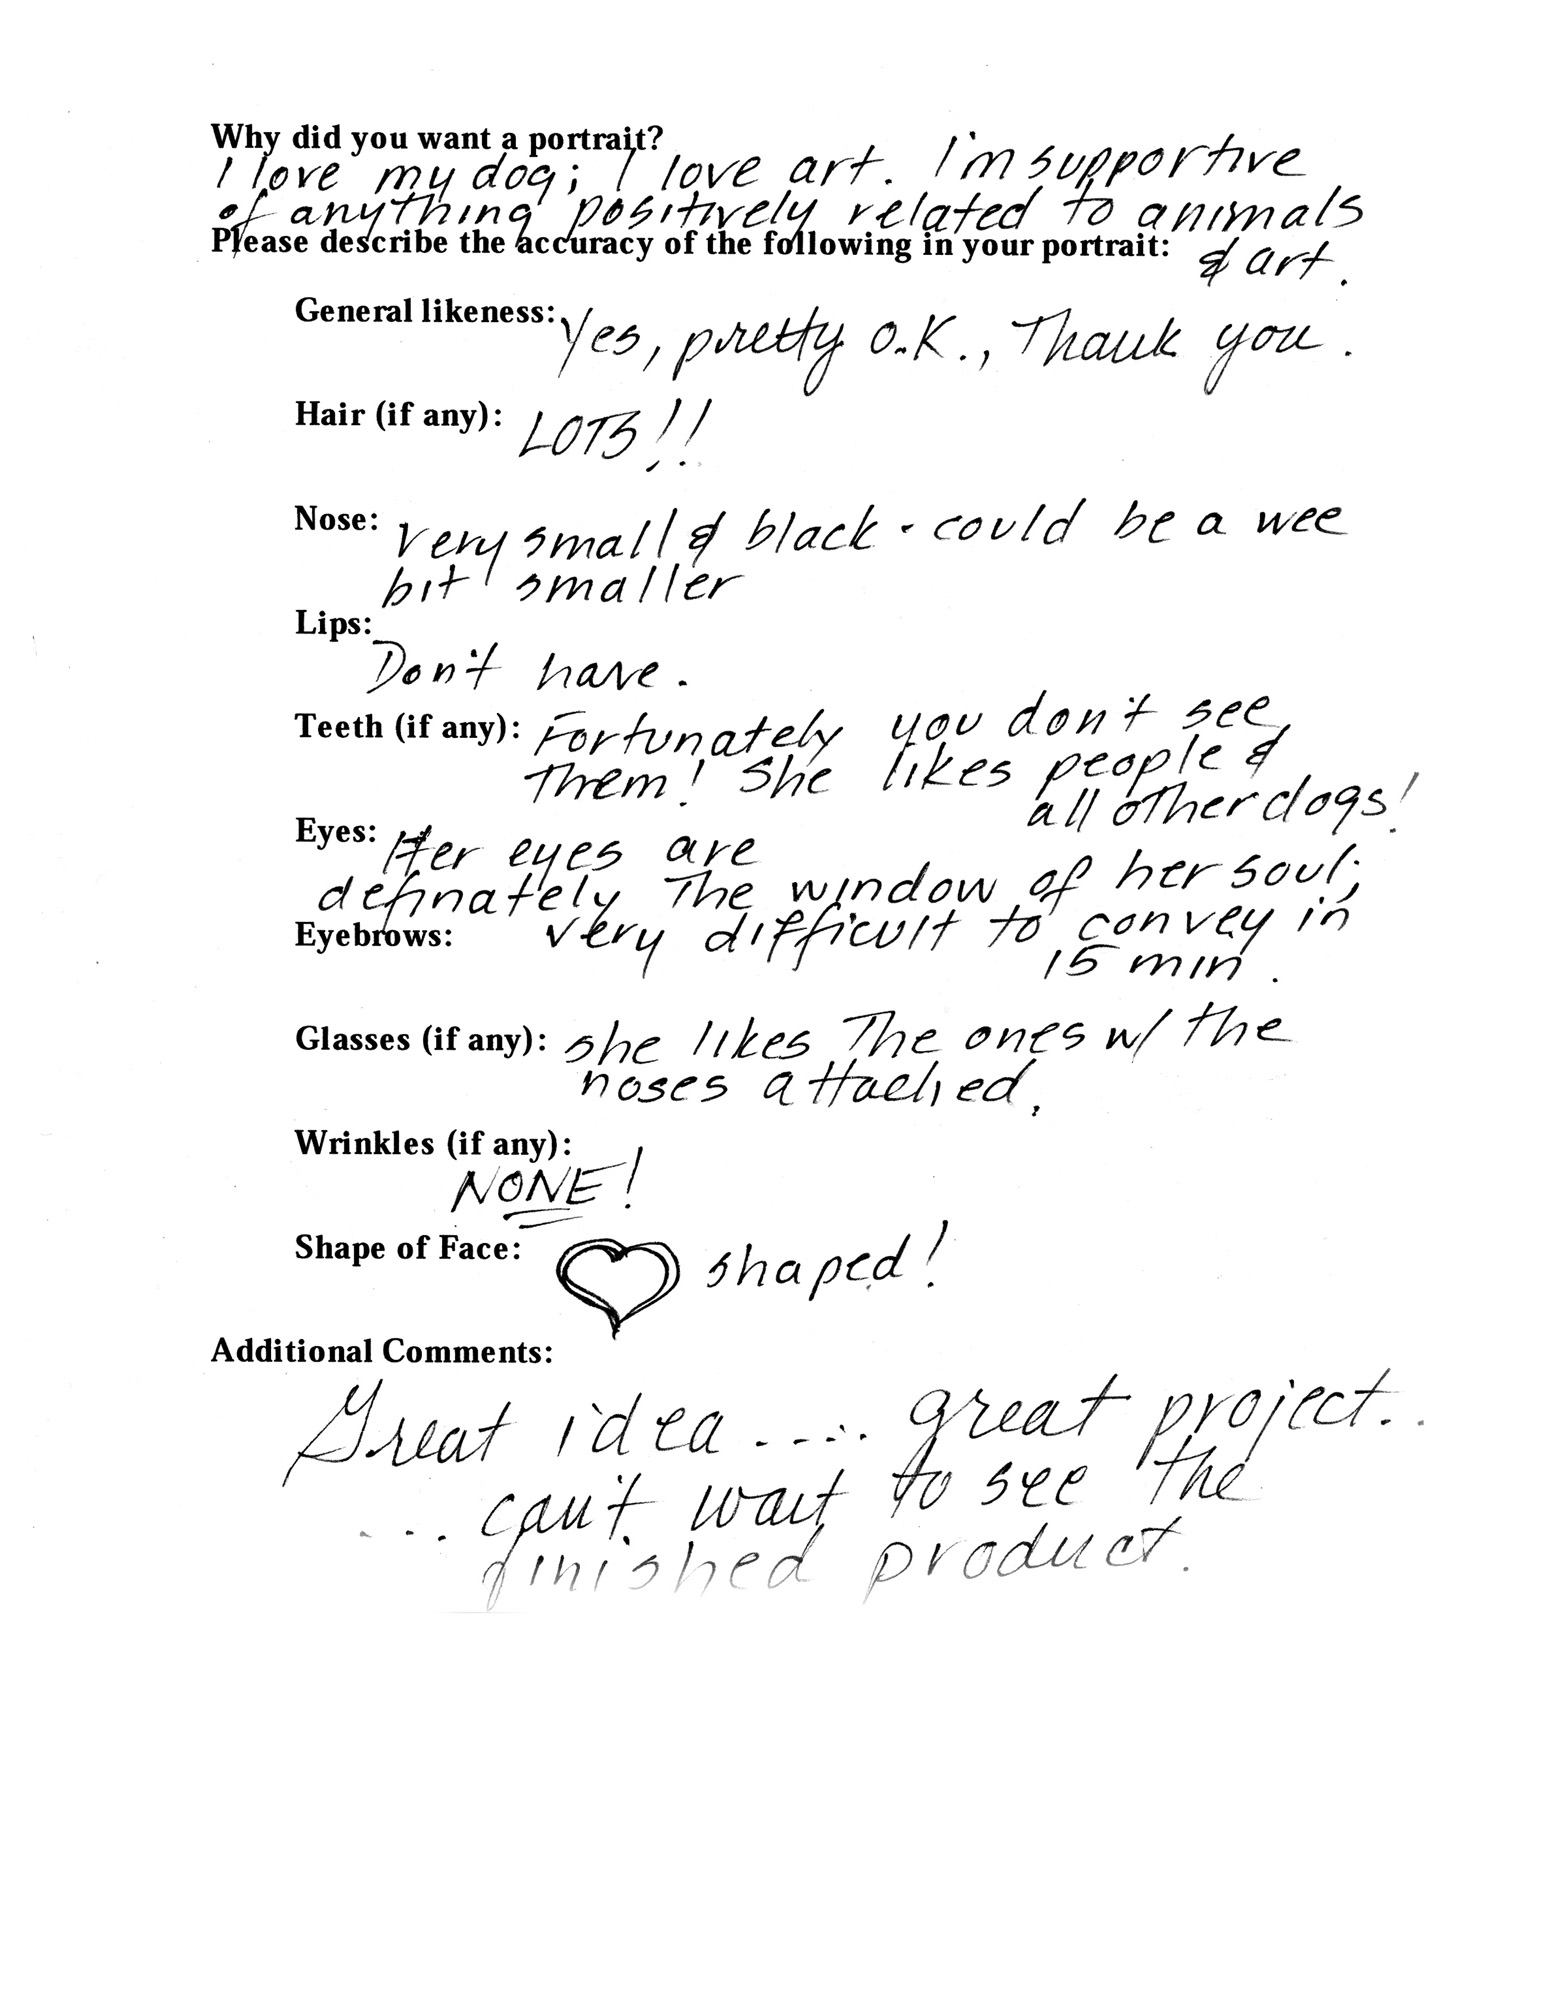 Why did you want a portrait?
I love my dog; I love art. I'm supportive
of anything positively related to animals
& art.
Please describe the accuracy of the following in your portrait:
General likeness: Yes, pretty O.K., Thank you.
Hair (if any): LOTS!!
Nose: Very small & black - could be a wee
bit smaller
Lips:
Don't have.
Teeth (if any): Fortunately you don't see
them! She likes people &
all other dogs!
Eyes: Her eyes are
definately the window of her soul;
very difficult to convey in
15 min.
Eyebrows:
Glasses (if any): she likes the ones w/ the
noses attached.
Wrinkles (if any):
NONE!
Shape of Face: shaped!
Additional Comments:
Great idea .... great project..
... can't wait to see the
finished product.